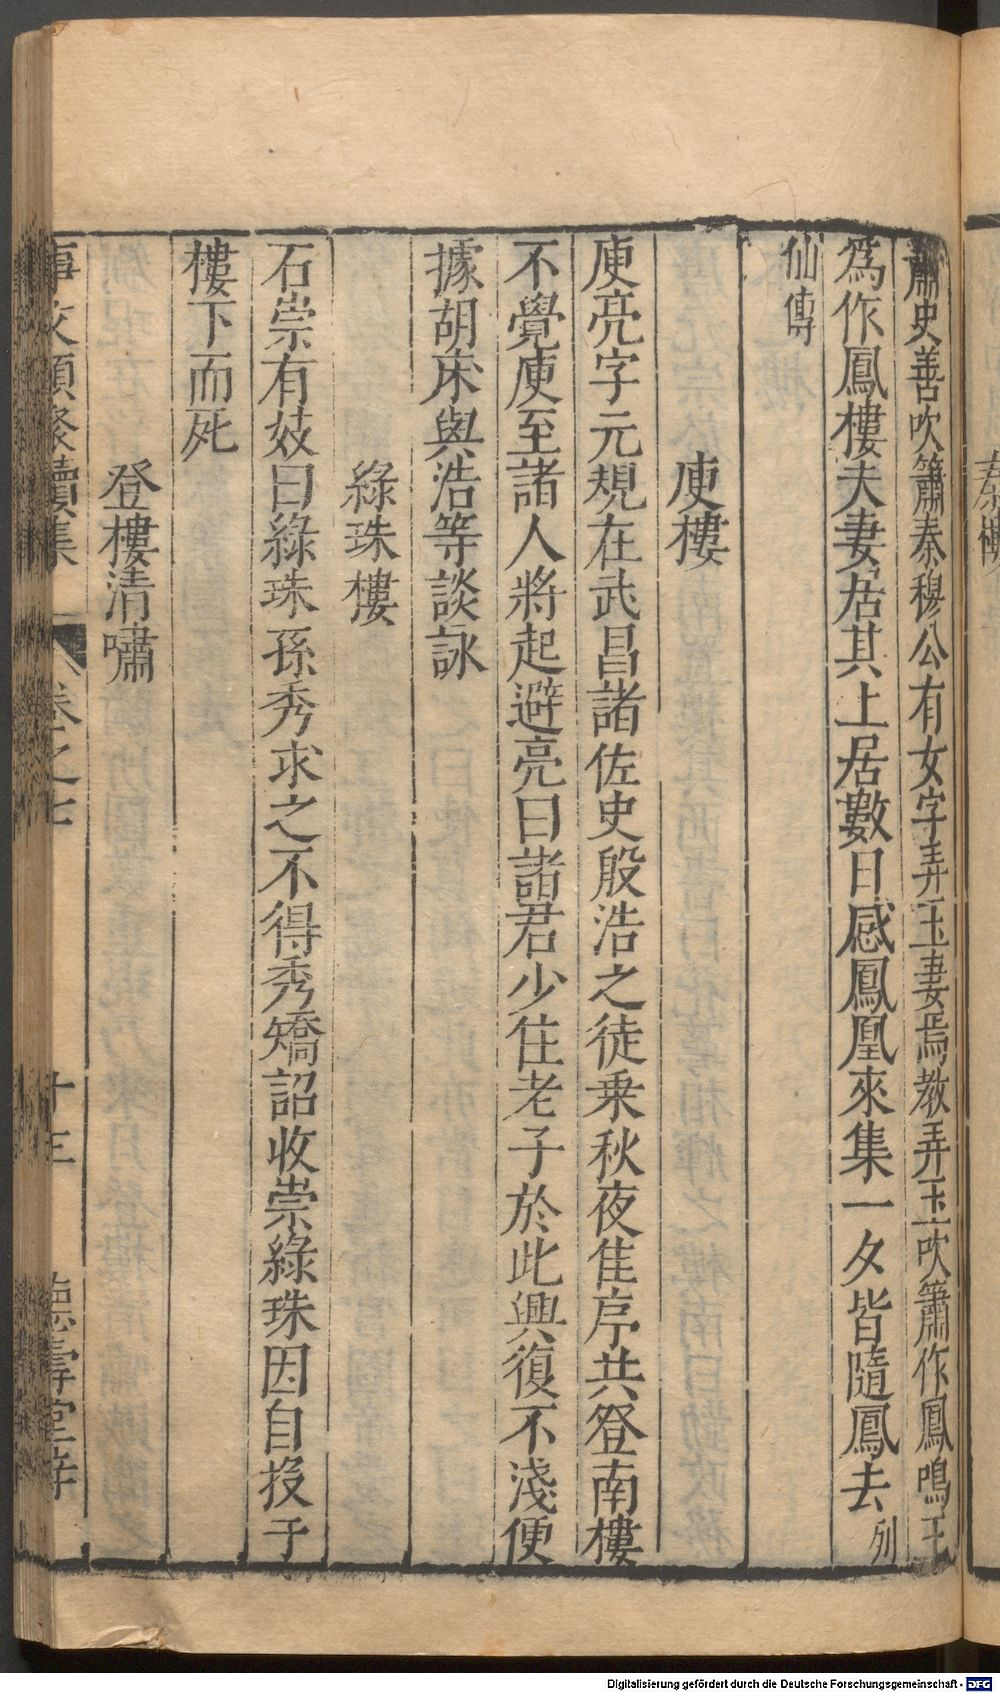 秦樓
蕭史善吹簫秦穆公有女字弄玉妻焉教弄玉吹簫作鳳鳴王
爲作鳳樓夫妻居其上居數日感鳳凰來集一夕皆隨鳳去列
仙傳
庾樓
庾亮字元規在武昌諸佐史殷浩之徒乗秋夜佳序共登南樓
不覺庾至諸人將起避亮曰諸君少住老子於此興復不淺便
據胡床與浩等談詠
綠珠樓
石崇有妓曰綠珠孫秀求之不得秀矯詔收崇綠珠因自投于
樓下而死
登樓清嘯
事文類聚續集 卷之七 十三 德壽堂梓
Digitalisierung gefördert durch die Deutsche Forschungsgemeinschaft - DFG